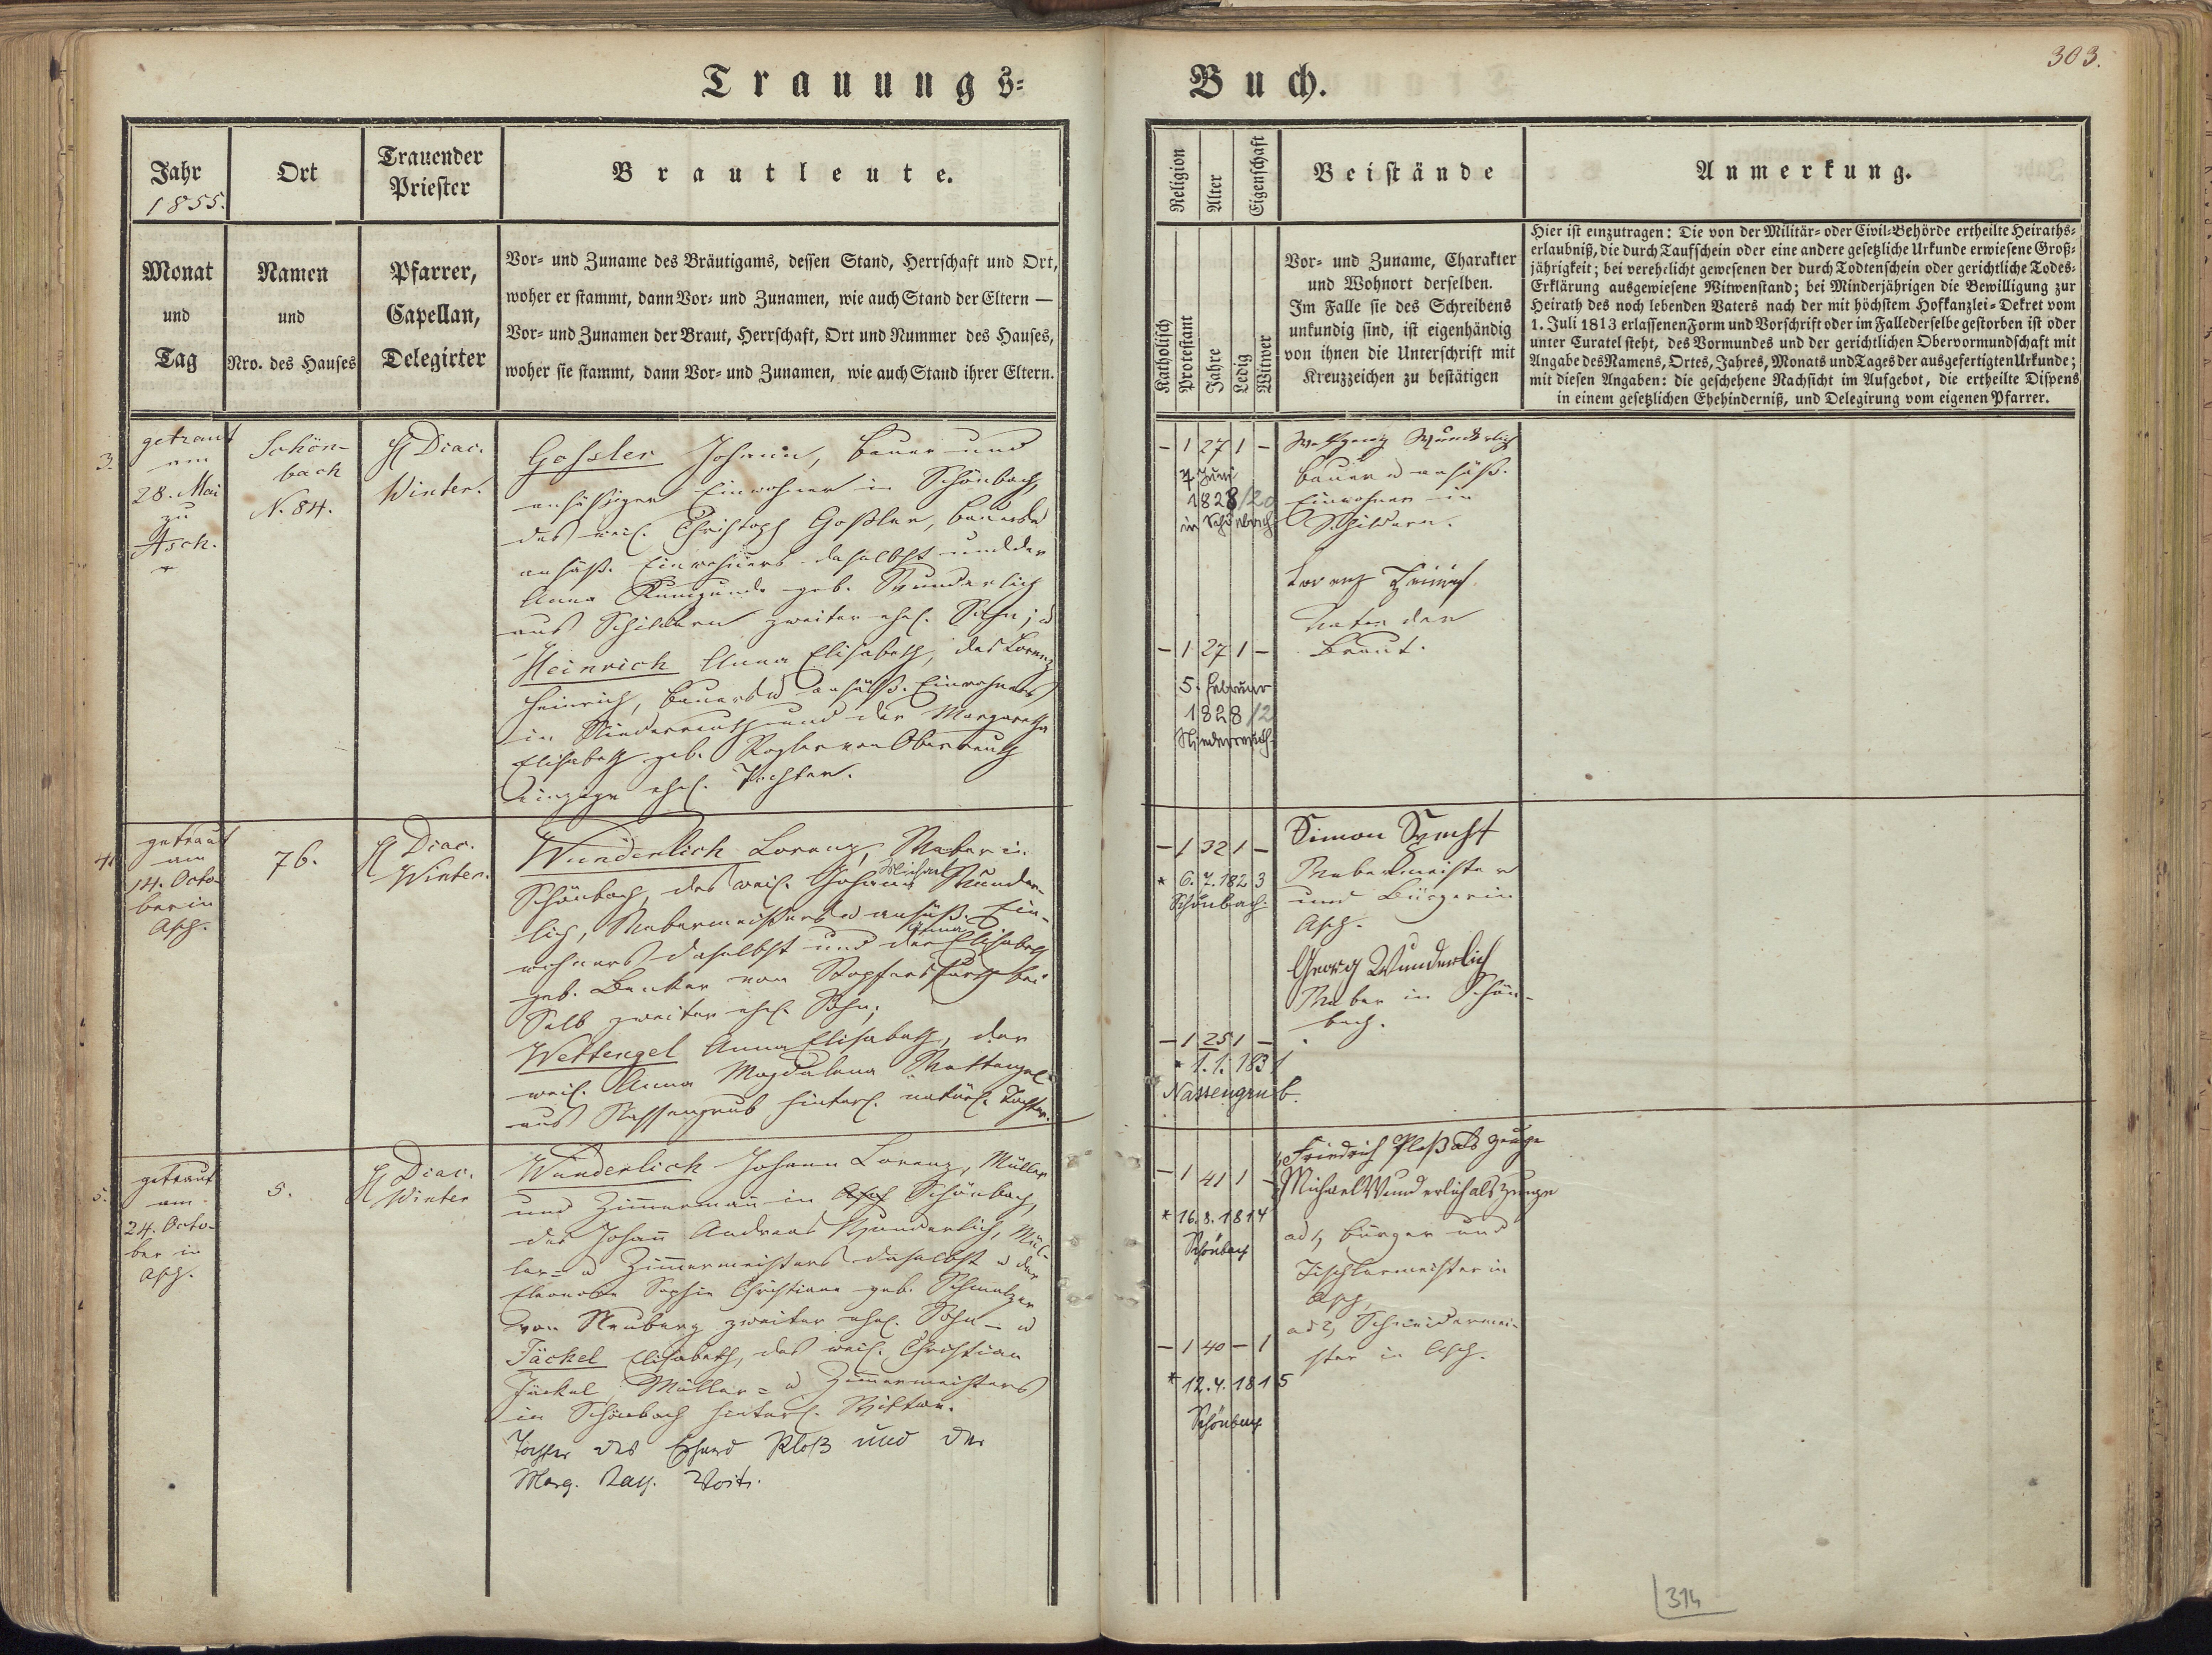 Trauungs-
Buch.
303.
Jahr
1855.
Ort
Trauender
Priester
Brautleute.
Monat
und
Tag
Namen
und
Nro. des Hauses
Pfarrer,
Capellan,
Delegirter
Vor- und Zuname des Bräutigams, dessen Stand, Herrschaft und Ort,
woher er stammt, dann Vor- und Zunamen, wie auch Stand der Eltern —
Vor- und Zunamen der Braut, Herrschaft, Ort und Nummer des Hauses,
woher sie stammt, dann Vor- und Zunamen, wie auch Stand ihrer Eltern.
Religion
Alter
Eigenschaft
Beistände
Anmerkung.
Katholisch
Protestant
Jahre
Ledig
Witwer
Vor- und Zuname, Charakter
und Wohnort derselben.
Im Falle sie des Schreibens
unkundig sind, ist eigenhändig
von ihnen die Unterschrift mit
Kreuzzeichen zu bestätigen
Hier ist einzutragen: Die von der Militär- oder Civil-Behörde ertheilte Heiraths-
erlaubniß, die durch Taufschein oder eine andere gesetzliche Urkunde erwiesene Groß-
jährigkeit; bei verehelicht gewesenen der durch Todtenschein oder gerichtliche Todes-
Erklärung ausgewiesene Witwenstand; bei Minderjährigen die Bewilligung zur
Heirath des noch lebenden Vaters nach der mit höchstem Hofkanzlei-Dekret vom
1. Juli 1813 erlassenen Form und Vorschrift oder im Falle derselbe gestorben ist oder
unter Curatel steht, des Vormundes und der gerichtlichen Obervormundschaft mit
Angabe des Namens, Ortes, Jahres, Monats und Tages der ausgefertigten Urkunde;
mit diesen Angaben: die geschehene Nachsicht im Aufgebot, die ertheilte Dispens
in einem gesetzlichen Ehehinderniß, und Delegirung vom eigenen Pfarrer.
3.
getraut
am
28. Mai
zu
Asch.
Schön-
bach
N. 84.
H Diac.
Winter.
Gossler Johann, Bauer und
ansässiger Einwohner in Schönbach,
des weil. Christoph Goßler, Bauers u
ansäß. Einwohners daselbst und der
Anna Kunigunde geb. Wunderlich
aus Schildern zweiter ehel. Sohn; u
Heinrich Anna Elisabeth, des Lorenz
Heinrich, Bauers u ansäß. Einwohners
in Niederreuth und der Margaretha
Elisabeth geb. Rogler von Oberreuth
einzige ehel. Tochter.
– 1 27 1 –
7. Juni
1828/20
in Schönbach
Wolfgang Wunderlich
Bauer u ansäß.
Einwohner in
Schildern.
Lorenz Heinrich
Vater der
Braut.
– 1 27 1 –
5. Februar
1828/2
Niederreuth
4.
getraut
am
14. Octo-
ber in
Asch.
76.
H Diac.
Winter.
Wunderlich Lorenz, Weber in
Schönbach, des weil. Johann Michael Wunder-
lich, Webermeisters u ansäß. Ein-
wohners daselbst und der Anna Elisabeth
geb. Benker von
Selb zweiter ehel. Sohn;
Wettengel Anna Elisabeth, der
weil. Anna Magdalena Wettengel
aus Nassengrub hinterl. natürl. Tochter.
– 1 32 1 –
* 6. 7. 1823
Schönbach
Simon
Webermeister
und Bürger in
Asch.
Georg Wunderlich
Weber in Schön-
bach.
– 1 25 1 –
* 1. 1. 1831
Nassengrub.
5.
getraut
am
24. Octo-
ber in
Asch.
5.
H Diac.
Winter
Wunderlich Johann Lorenz, Müller
und Zimmermann in Asch Schönbach,
des Johann Andreas Wunderlich, Mül-
ler- u Zimmermeisters daselbst u der
Eleonore Sophie Christiane geb. Schmelzer
von Neuberg zweiter ehel. Sohn – u
Jäckel Elisabeth, des weil. Christian
Jäckel, Müller- u Zimmermeisters
in Schönbach hinterl. Wittwe.
Tochter des Erhard Ploß und der
Marg. Kath. Voit.
– 1 41 1 –
* 16. 8. 1814
Schönbach
Friedrich Ploß als Zeuge
Michael Wunderlich als Zeuge
ad 1, Bürger und
Tischlermeister in
Asch,
ad 2, Schneidermei-
ster in Asch.
– 1 40 – 1
* 12. 4. 1815
Schönbach
314